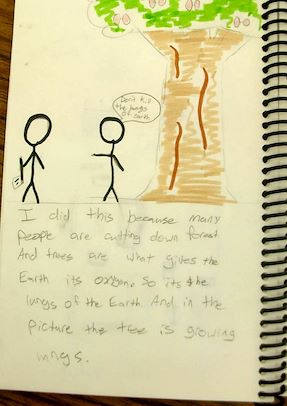 Don't kill
the lungs
of Earth
I did this because many
people are cutting down forest
And trees are what gives the
Earth its oxygen. So its the
lungs of the Earth And in the
picture the tree is growing
lungs.